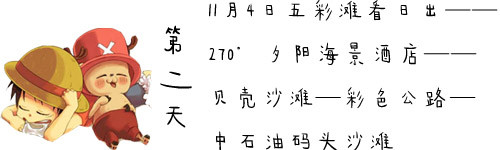 第二天
11月4日五彩滩看日出——
270°夕阳海景酒店——
贝壳沙滩—彩色公路—
中石油码头沙滩